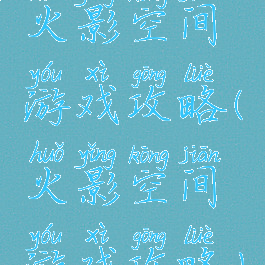 火影空间
yóu xì gōng lüè
游戏攻略(
huǒ yǐng kōng jiān
火影空间
yóu xì gōng lüè
游戏攻略)